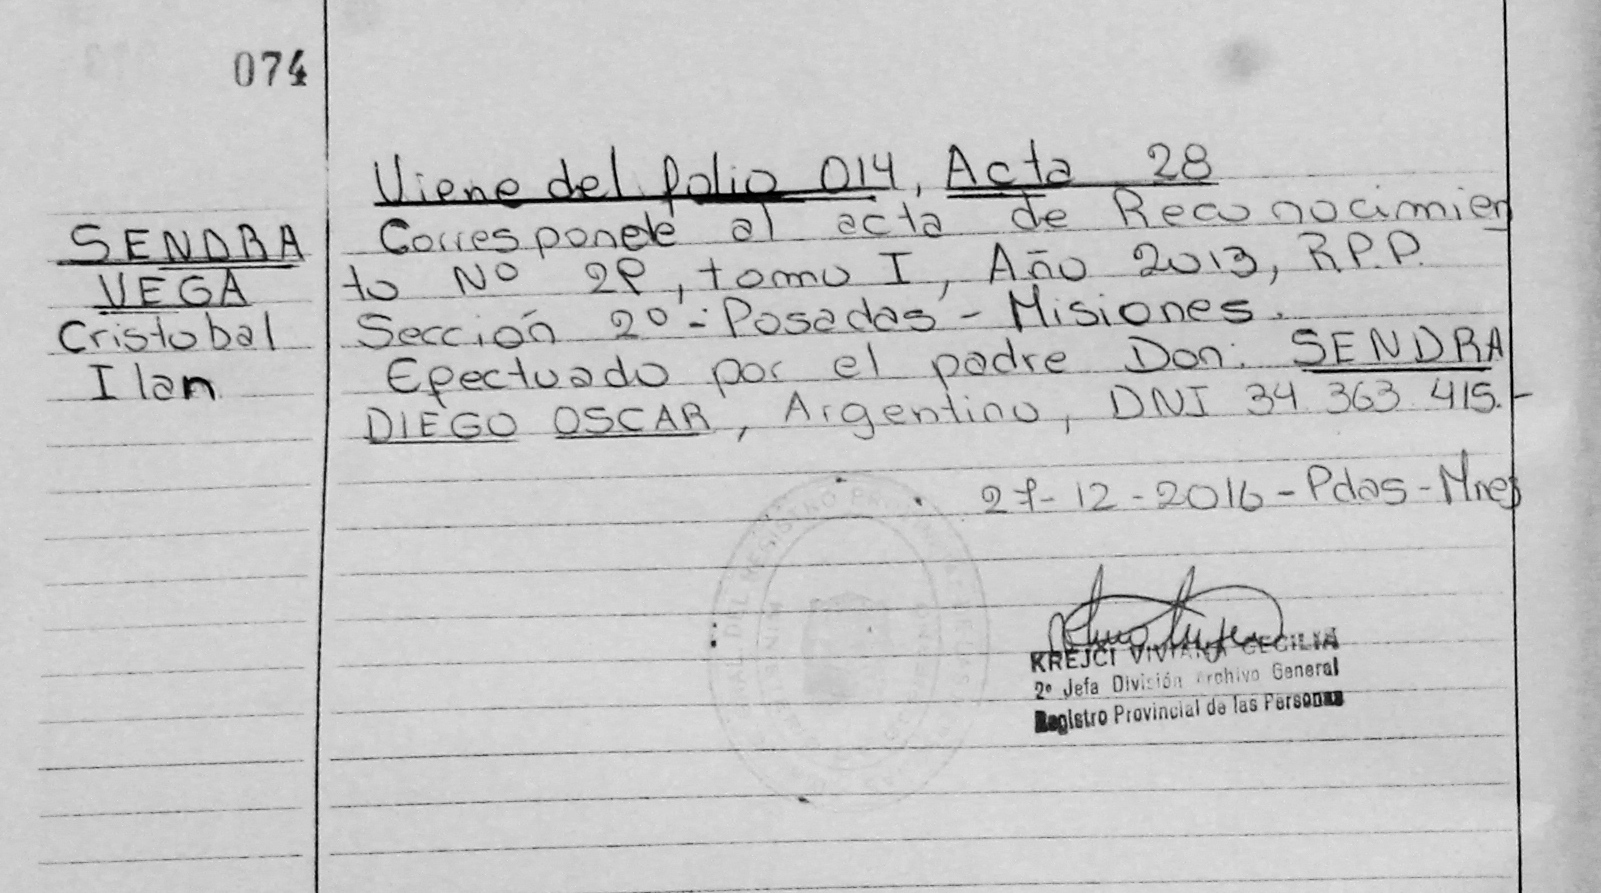 074
Viene del folio 014, Acta 28
SENDRA
VEGA
Cristobal
Ilan
Corresponde al acta de Reconocimien
to Nº 28, tomo I, Año 2013, R.P.P.
Sección 2º - Posadas - Misiones.
Efectuado por el padre Don: SENDRA
DIEGO OSCAR, Argentino, DNI 34.363.415.-
27-12-2016 - Pdas - Mnes
KREJCI VIVIANA CECILIA
2º Jefa División Archivo General
Registro Provincial de las Personas